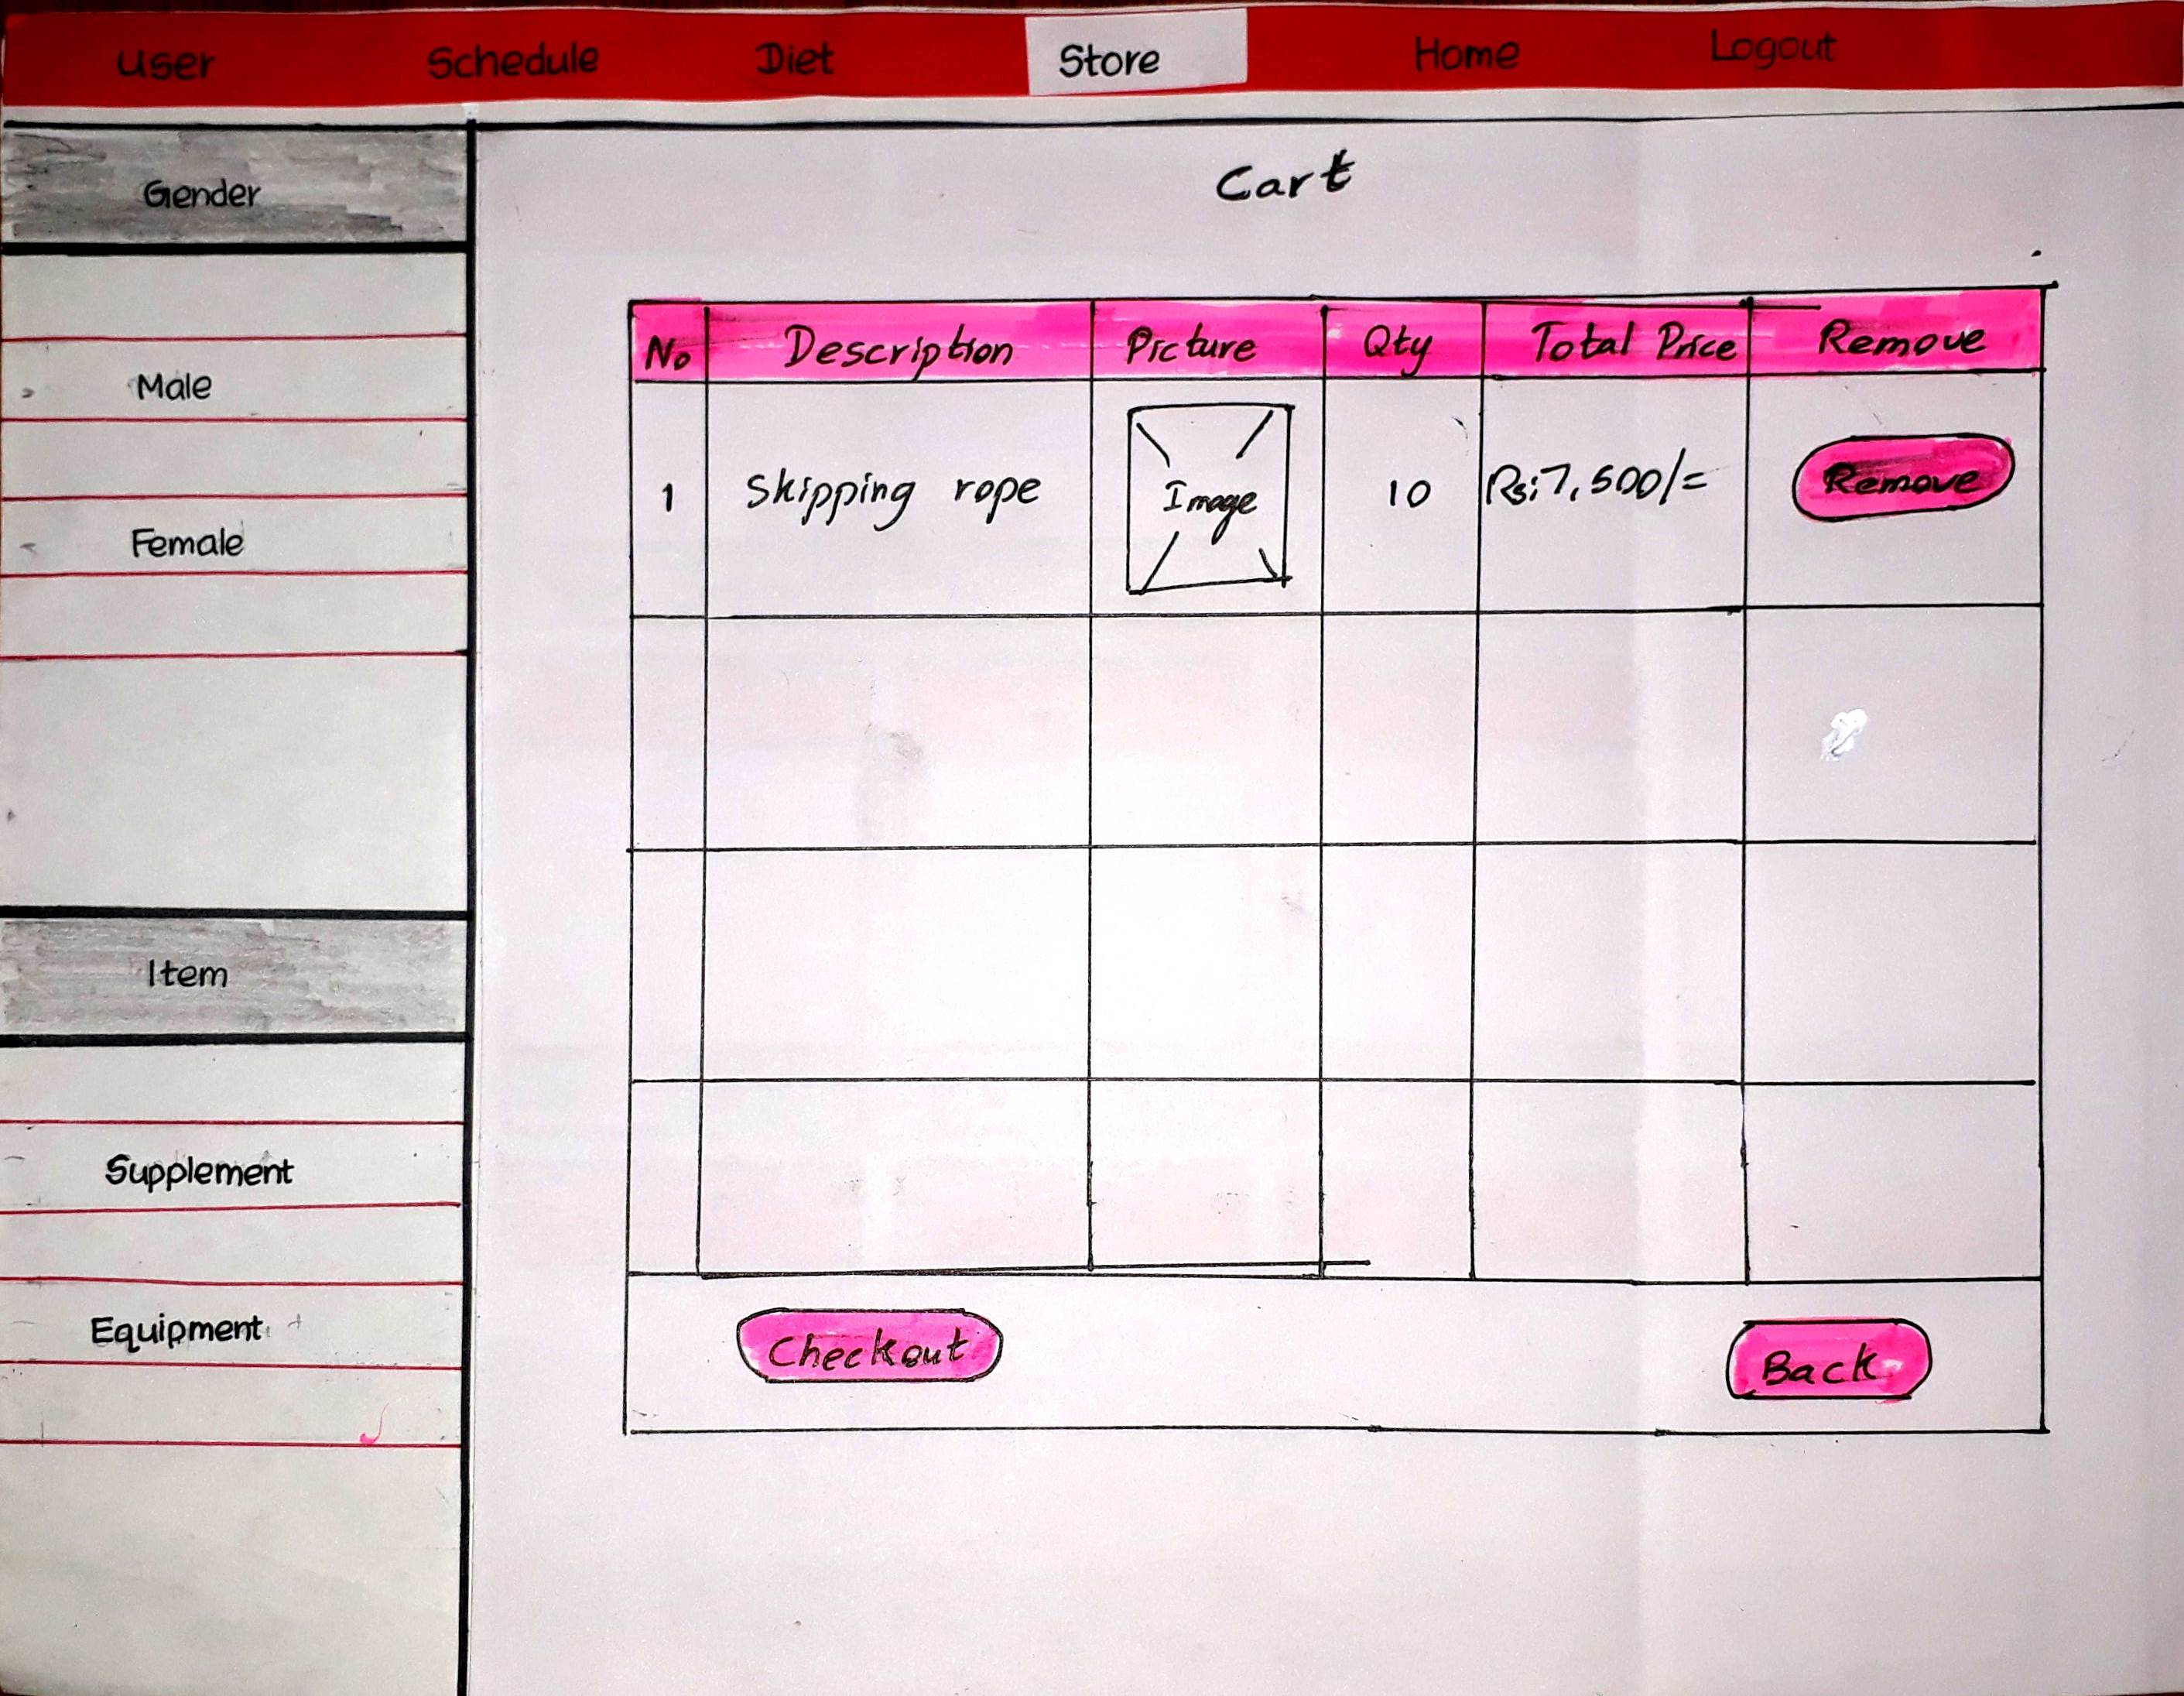 User Schedule Diet Store Home Logout
Gender
Male
Female
Item
Supplement
Equipment
Cart
No Description Picture Qty Total Price Remove
1 Skipping rope Image 10 Rs:7,500/= Remove
Checkout Back